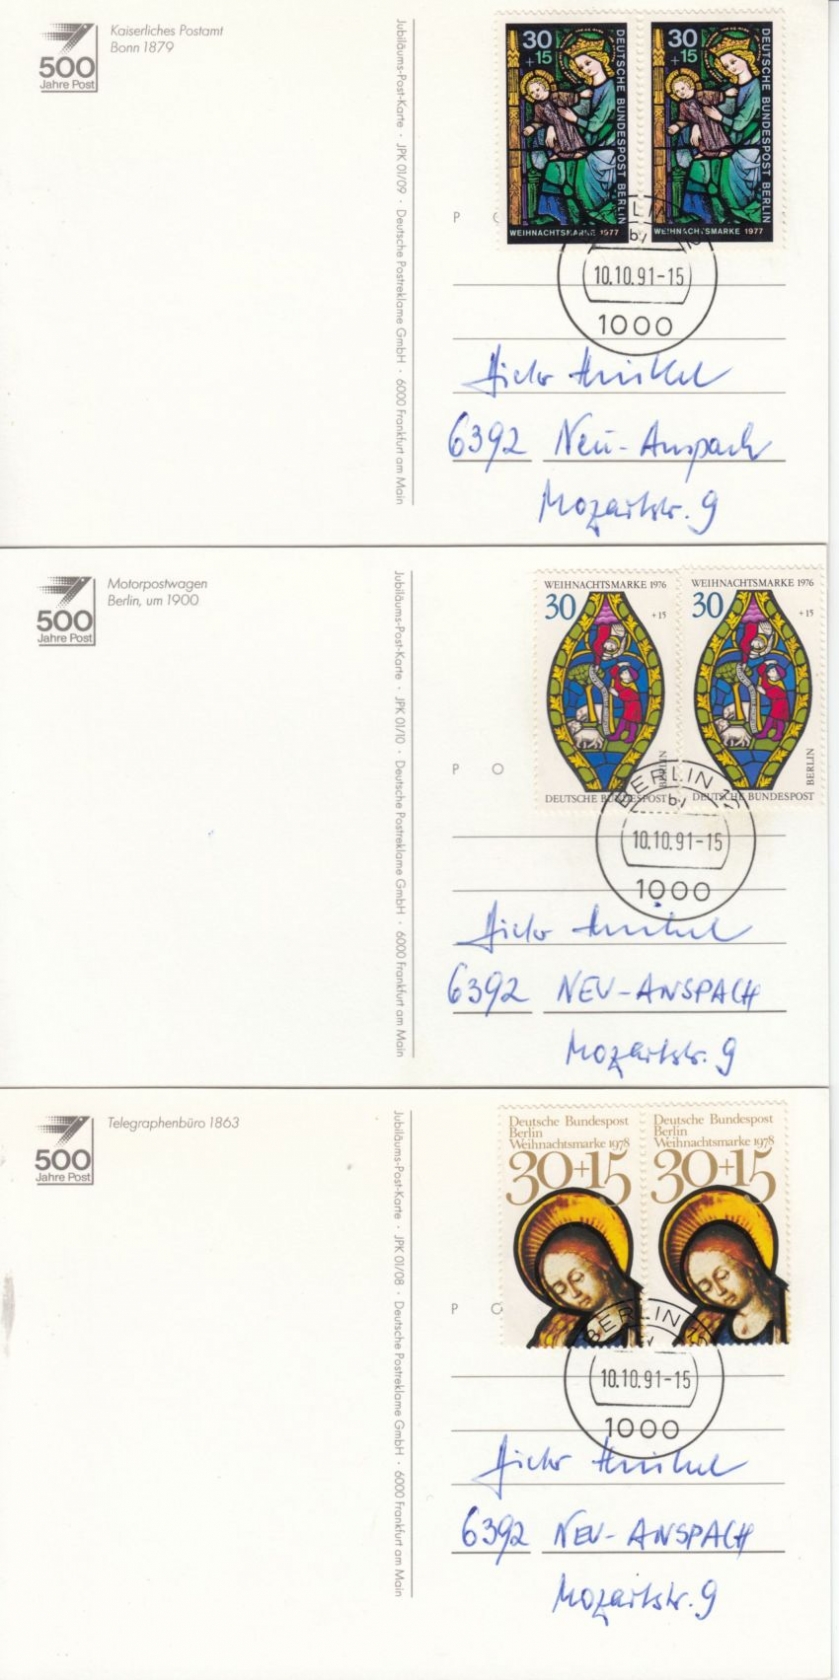 500
Jahre Post
Kaiserliches Postamt
Bonn 1879
Jubiläums-Post-Karte · JPK 01/09 · Deutsche Postreklame GmbH · 6000 Frankfurt am Main
30
+15
DEUTSCHE BUNDESPOST BERLIN
WEIHNACHTSMARKE 1977
30
+15
DEUTSCHE BUNDESPOST BERLIN
WEIHNACHTSMARKE 1977
P
10.10.91-15
1000
6392 Neu-Anspach
Mozartstr. 9
500
Jahre Post
Motorpostwagen
Berlin, um 1900
Jubiläums-Post-Karte · JPK 01/10 · Deutsche Postreklame GmbH · 6000 Frankfurt am Main
WEIHNACHTSMARKE 1976
30
+15
BERLIN
DEUTSCHE BUNDESPOST
WEIHNACHTSMARKE 1976
30
+15
BERLIN
DEUTSCHE BUNDESPOST
P O
BERLIN
10.10.91-15
1000
6392 NEU-ANSPACH
Mozartstr. 9
500
Jahre Post
Telegraphenbüro 1863
Jubiläums-Post-Karte · JPK 01/08 · Deutsche Postreklame GmbH · 6000 Frankfurt am Main
Deutsche Bundespost
Berlin
Weihnachtsmarke 1978
30+15
Deutsche Bundespost
Berlin
Weihnachtsmarke 1978
30+15
P
BERLIN
10.10.91-15
1000
6392 NEU-ANSPACH
Mozartstr. 9